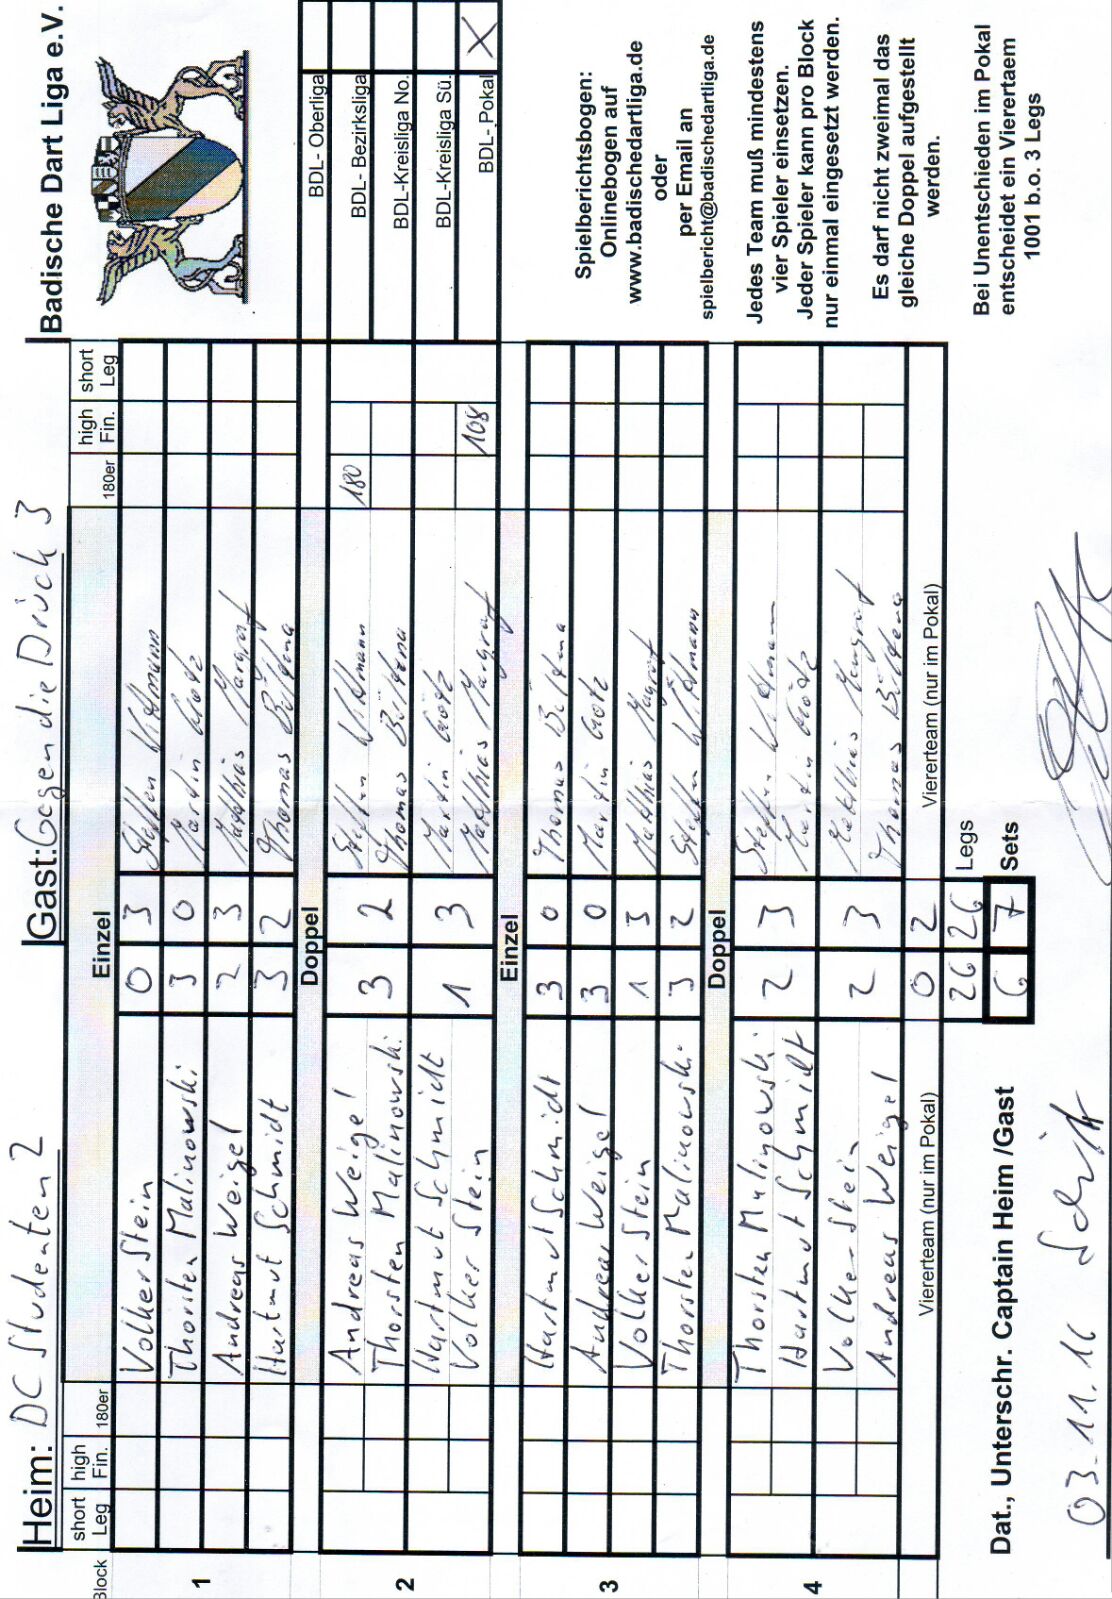 Heim: DC Studenten 2
Gast: Gegen die Drück 3
Badische Dart Liga e.V.
Block
short Leg
high Fin.
180er
Einzel
180er
high Fin.
short Leg
1
Volker Stein 0 3 Steffen Wittmann
Thorsten Malinowski 3 0 Martin Götz
Andreas Weigel 2 3 Matthias Margraf
Hartmut Schmidt 3 2 Thomas Beltena
BDL- Oberliga
Doppel
BDL- Bezirksliga
BDL-Kreisliga No.
BDL-Kreisliga Sü.
BDL- Pokal X
2
Andreas Weigel 3 2 Steffen Wittmann 180
Thorsten Malinowski Thomas Beltena
Hartmut Schmidt 1 3 Martin Götz
Volker Stein Matthias Margraf 108
Einzel
3
Hartmut Schmidt 3 0 Thomas Beltena
Andreas Weigel 3 0 Martin Götz
Volker Stein 1 3 Matthias Margraf
Thorsten Malinowski 3 2 Steffen Wittmann
Doppel
4
Thorsten Malinowski 2 3 Steffen Wittmann
Hartmut Schmidt Martin Götz
Volker Stein 2 3 Matthias Margraf
Andreas Weigel Thomas Beltena
Viererteam (nur im Pokal) 0 2 Viererteam (nur im Pokal)
26 26 Legs
6 7 Sets
Dat., Unterschr. Captain Heim /Gast
03.11.16
Spielberichtsbogen:
Onlinebogen auf
www.badischedartliga.de
oder
per Email an
spielbericht@badischedartliga.de
Jedes Team muß mindestens
vier Spieler einsetzen.
Jeder Spieler kann pro Block
nur einmal eingesetzt werden.
Es darf nicht zweimal das
gleiche Doppel aufgestellt
werden.
Bei Unentschieden im Pokal
entscheidet ein Viererteam
1001 b.o. 3 Legs